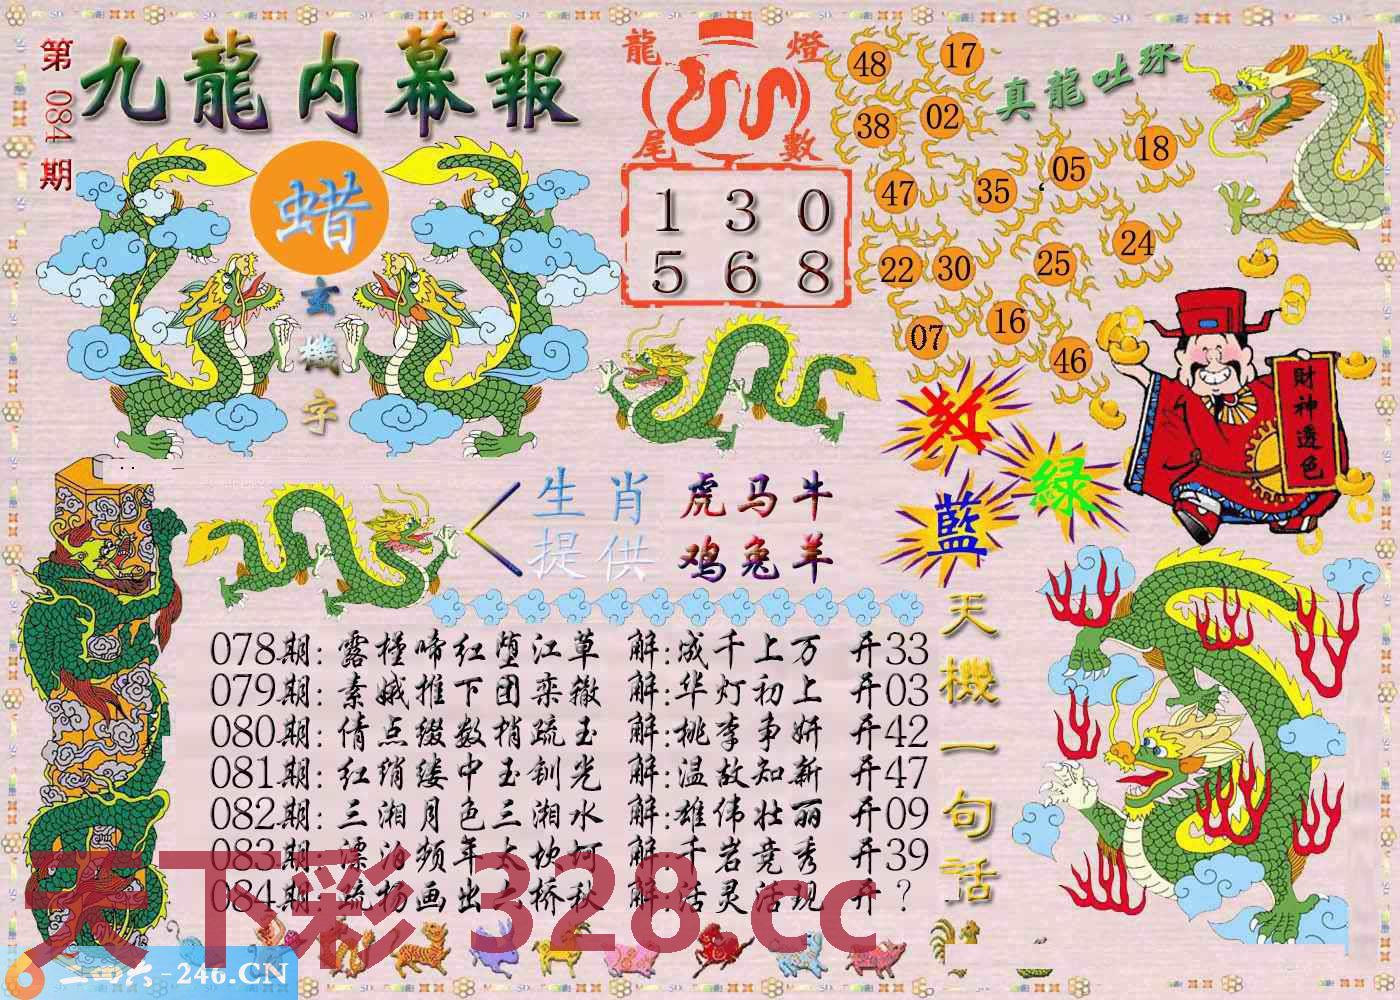 第084期
九龍内幕報
蜡
玄機字
龍燈尾數
1 3 0
5 6 8
真龍吐珠
48 17
38 02
47 35 05 18
22 30 25 24
07 16 46
紅
綠
藍
財神透色
生肖提供
虎马牛
鸡兔羊
天機一句話
078期: 露槿啼红堕江草 解:成千上万 开33
079期: 素娥推下团栾辙 解:华灯初上 开03
080期: 倩点缀数梢疏玉 解:桃李争妍 开42
081期: 红绡缕中玉钏光 解:温故知新 开47
082期: 三湘月色三湘水 解:雄伟壮丽 开09
083期: 漂泊频年太坎坷 解:千岩竞秀 开39
084期: 疏杨画出六桥秋 解:活灵活现 开?
天下彩 328.cc
二四六-246.CN